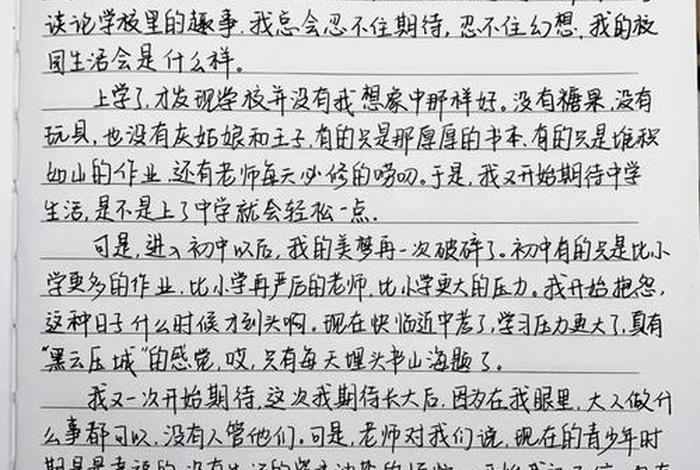 谈论学校里的趣事,我总会忍不住期待,忍不住幻想,我的校
园生活会是什么样。
上学了,才发现学校并没有我想象中那样好。没有糖果,没有
玩具,也没有灰姑娘和王子,有的只是那厚厚的书本,有的只是堆积
如山的作业,还有老师每天必修的唠叨。于是,我又开始期待中学
生活,是不是上了中学就会轻松一点.
可是,进入初中以后,我的美梦再一次破碎了。初中有的只是比小
学更多的作业,比小学再严后的老师,比小学更大的压力。我开始抱怨,
这种日子什么时候才到头啊。现在快临近中考了,学习压力更大了,真有
“黑云压城”的感觉,哎,只有每天埋头书山海题了。
我又一次开始期待,这次我期待长大后,因为在我眼里,大人做什
么事都可以,没有人管他们。可是,老师对我们说,现在的青少年时
期是最幸福的,没有生活的